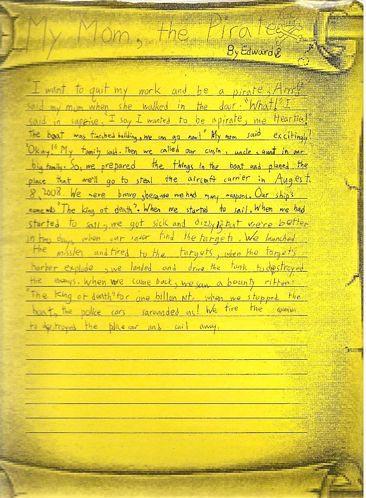 My Mom, the Pirate
By Edward
"I want to quit my work and be a pirate, Arr!"
said my mom when she walked in the door. "What!" I
said in suprise. "I say I wanted to be a pirate, me Heartie!
The boat was finished building, we can go now!" My mom said excitingly!
"Okay!" My family said. Then we called our cusin, uncle, aunt in our
big family. So, we prepared the things in the boat and planed the
place that we'll go to steal the aircraft carrier in August
8, 2008. We were brave, because we had many weapons. Our ship's
name is "The king of death". When we started to sail, When we had
started to sail, we got sick and dizzy, but we're better
in two days, when our radar find the targets. We launched
the missiles and fired to the targets, when the targets
harber explode, we landed and drive the tank to destroyed
the enemys. When we came back, we saw a bounty ritten:
"The king of death" for one billion NT. when we stopped the
boat, the police cars sarounded us! We fire the cannon
to destroyed the police car and sail away.